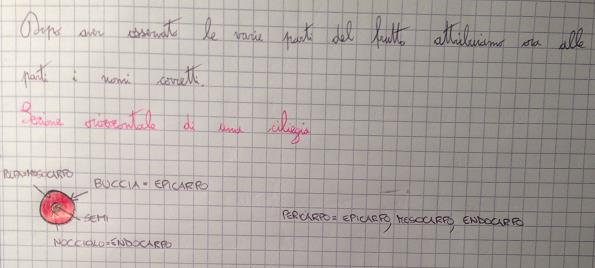 Dopo aver osservato le varie parti del frutto attribuiamo ora alle
parti i nomi corretti.
Sezione orizzontale di una ciliegia
POLPA=MESOCARPO
BUCCIA=EPICARPO
SEMI
NOCCIOLO=ENDOCARPO
PERCARPO=EPICARPO, MESOCARPO, ENDOCARPO